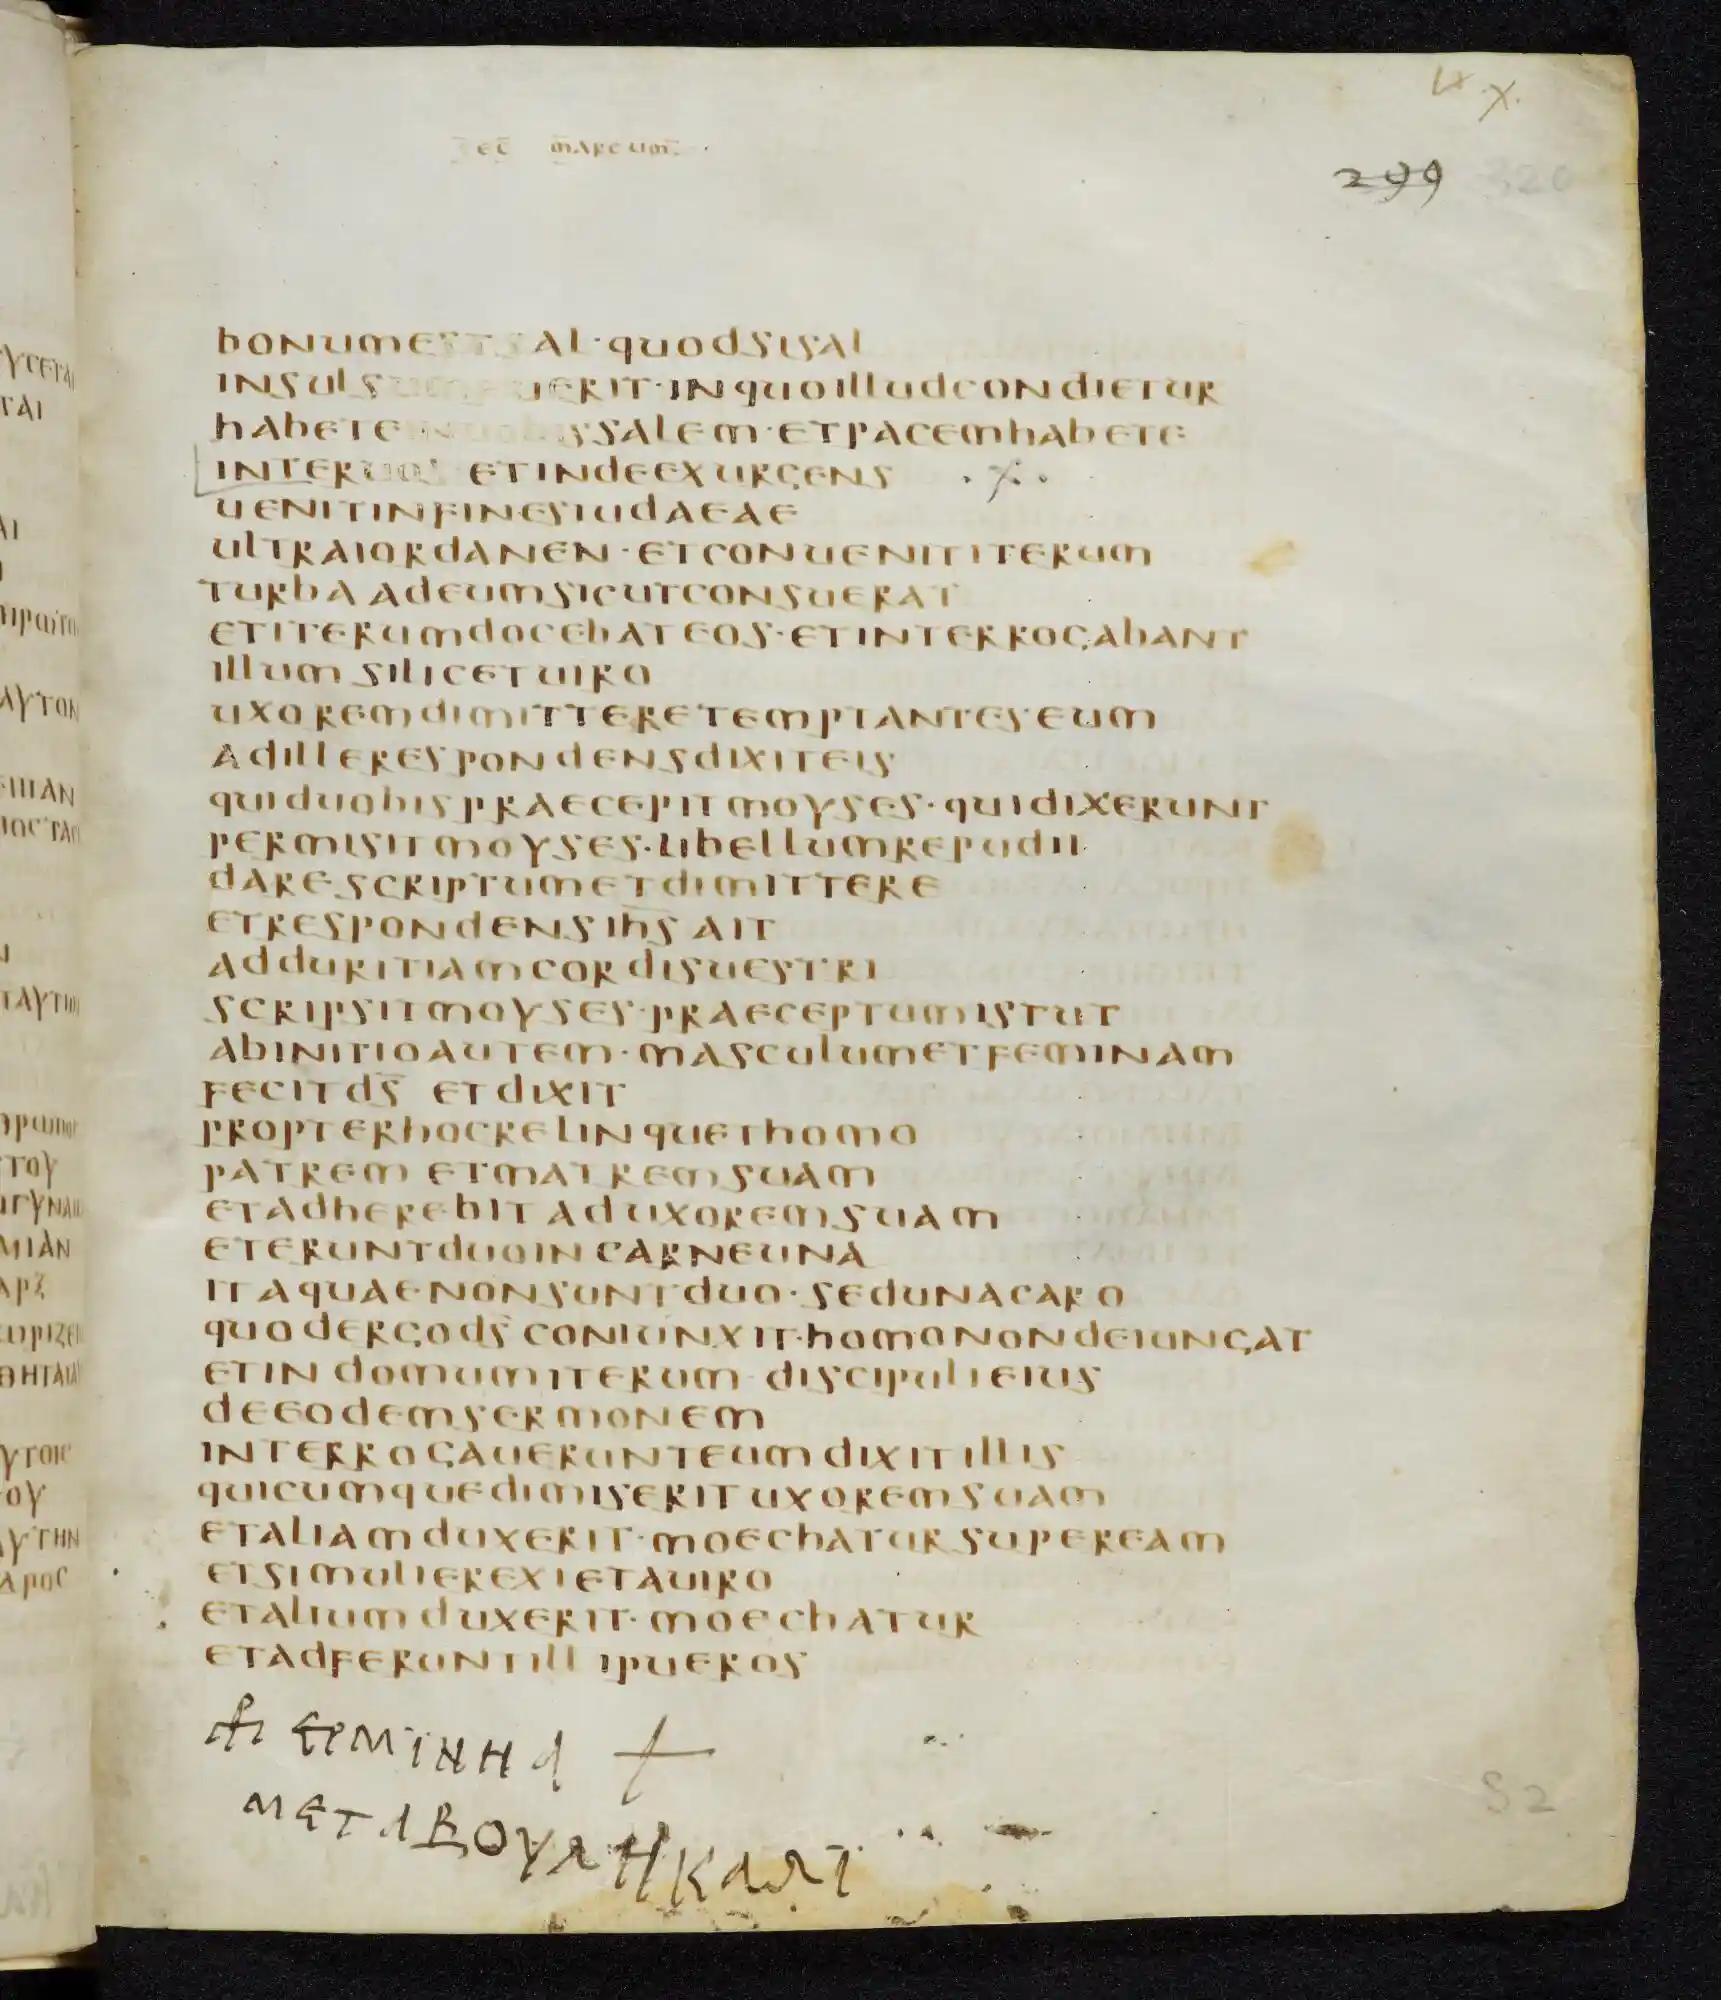 sec marcum
IX·X·
299 320
bonumest sal· quodsisal
insulsumfuerit· inquoilludcondietur
habeteinuobissalem· etpacemhabete
interuos etindeexurgens
uenitinfinesiudaeae
ultraiordanen· etconuenititerum
turbaadeumsicutconsuerat
etiterumdocebateos· etinterrogabant
illum silicetuiro
uxoremdimitteretemptanteseum
adillerespondensdixiteis
quiduobispraecepitmoyses· quidixerunt
permisitmoyses· libellumrepudii
darescriptumetdimittere
etrespondensihs ait
adduritiamcordisuestri
scripsitmoyses· praeceptumistut
abinitioautem· masculumetfeminam
fecitds etdixit
propterhocrelinquethomo
patrem etmatremsuam
etadherebitaduxoremsuam
eteruntduoincarneuna
itaquaenonsuntduo· sedunacaro
quodergods coniunxit· homonondeiungat
etindomumiterum discipulieius
deeodemsermonem
interrogaueruntеumdixitillis
quicumquedimiserituxoremsuam
etaliamduxerit· moechatursupeream
etsimulierexietauiro
etaliumduxerit· moechatur
etadferuntillipueros
ερμινηα
μεταβουλη
52